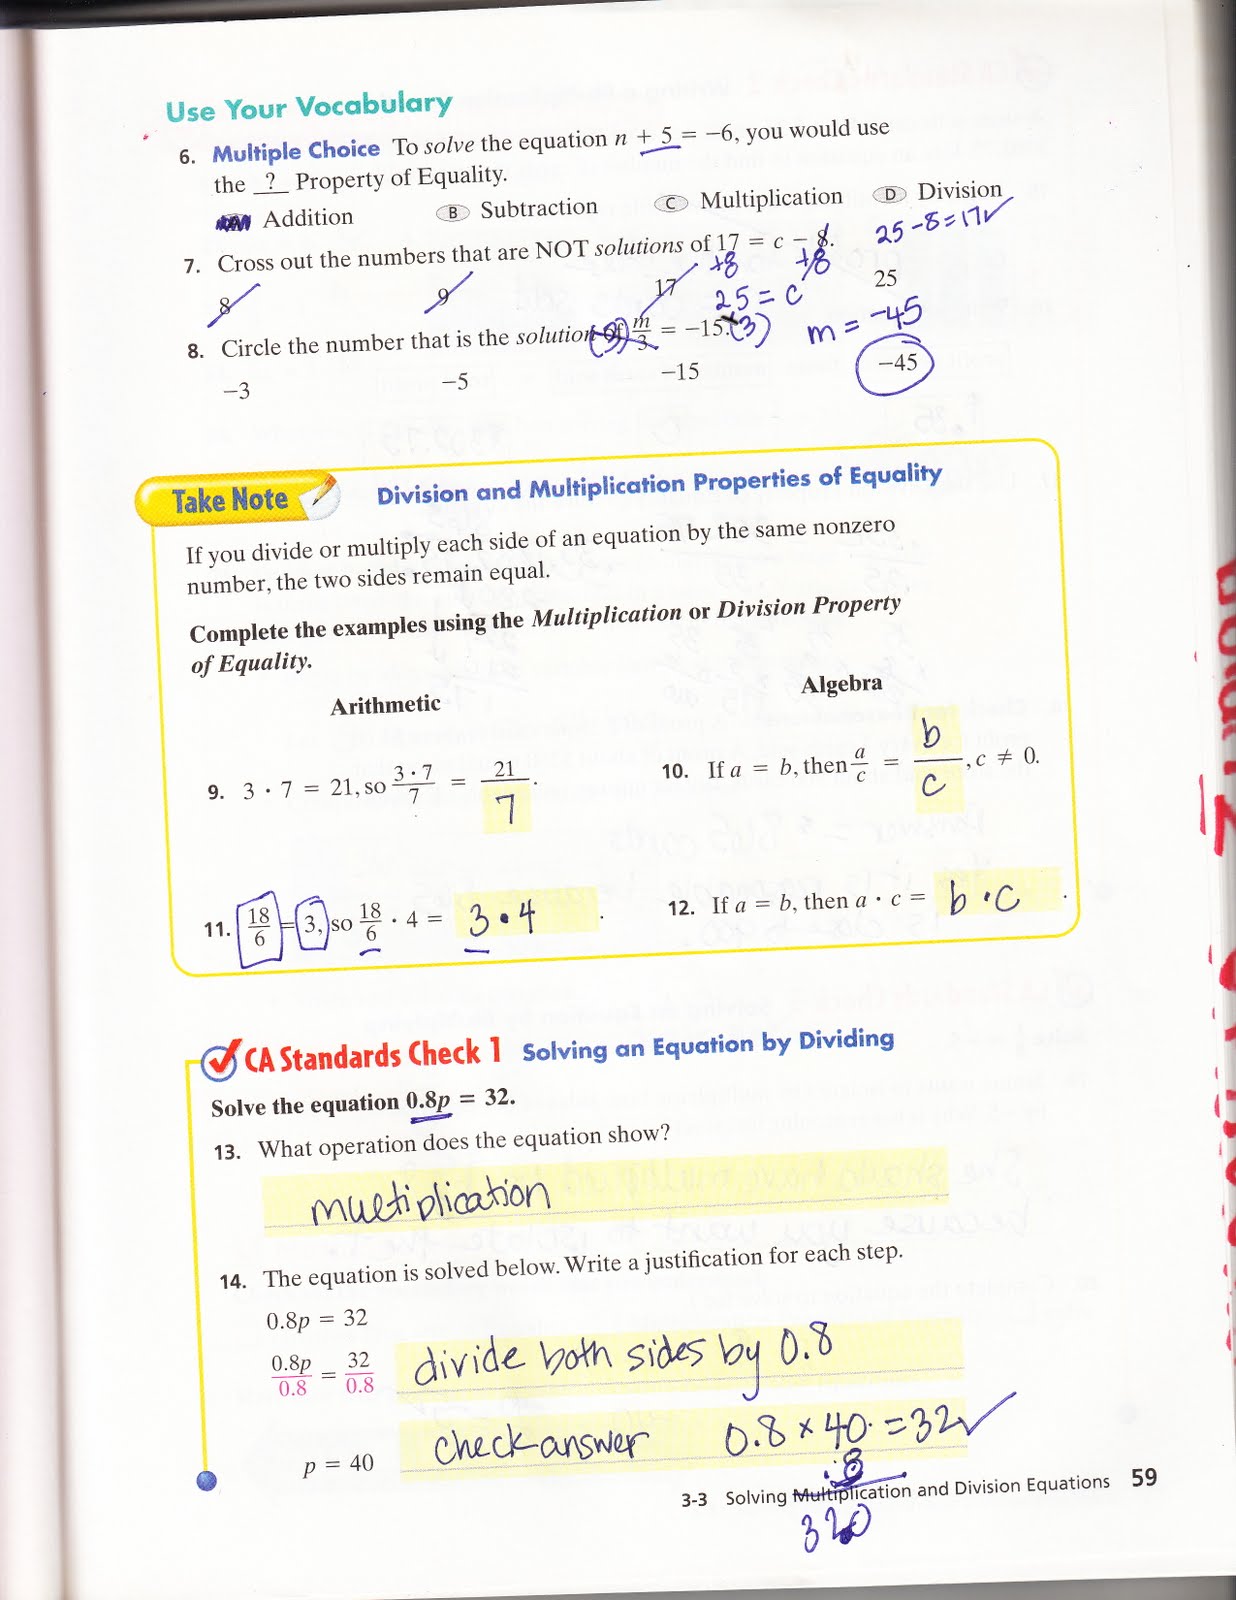 Use Your Vocabulary
6. Multiple Choice To solve the equation n + 5 = −6, you would use
the ? Property of Equality.
Addition B Subtraction C Multiplication D Division
25 - 8 = 17 ✓
7. Cross out the numbers that are NOT solutions of 17 = c − 8.
+8 +8
8 9 17 25
25 = c
8. Circle the number that is the solution of m/3 = −15.
(3) (3) m = -45
−3 −5 −15 −45
Take Note Division and Multiplication Properties of Equality
If you divide or multiply each side of an equation by the same nonzero
number, the two sides remain equal.
Complete the examples using the Multiplication or Division Property
of Equality.
Arithmetic Algebra
9. 3 · 7 = 21, so 3 · 7/7 = 21/7.
10. If a = b, then a/c = b/c, c ≠ 0.
11. 18/6 = 3, so 18/6 · 4 = 3 · 4.
12. If a = b, then a · c = b · c.
CA Standards Check 1 Solving an Equation by Dividing
Solve the equation 0.8p = 32.
13. What operation does the equation show?
multiplication
14. The equation is solved below. Write a justification for each step.
0.8p = 32
0.8p/0.8 = 32/0.8 divide both sides by 0.8
p = 40 check answer 0.8 × 40 = 32 ✓
.8
3-3 Solving Multiplication and Division Equations 59
320